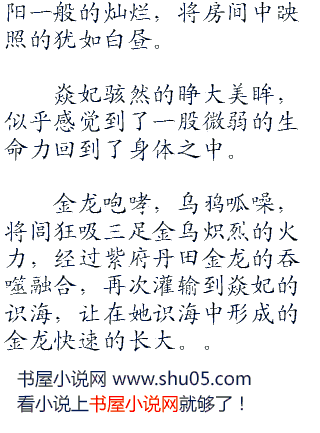 阳一般的灿烂，将房间中映
照的犹如白昼。
焱妃骇然的睁大美眸，
似乎感觉到了一股微弱的生
命力回到了身体之中。
金龙咆哮，乌鸦呱噪，
将闾狂吸三足金乌炽烈的火
力，经过紫府丹田金龙的吞
噬融合，再次灌输到焱妃的
识海，让在她识海中形成的
金龙快速的长大。。
书屋小说网 www.shu05.com
看小说上书屋小说网就够了！